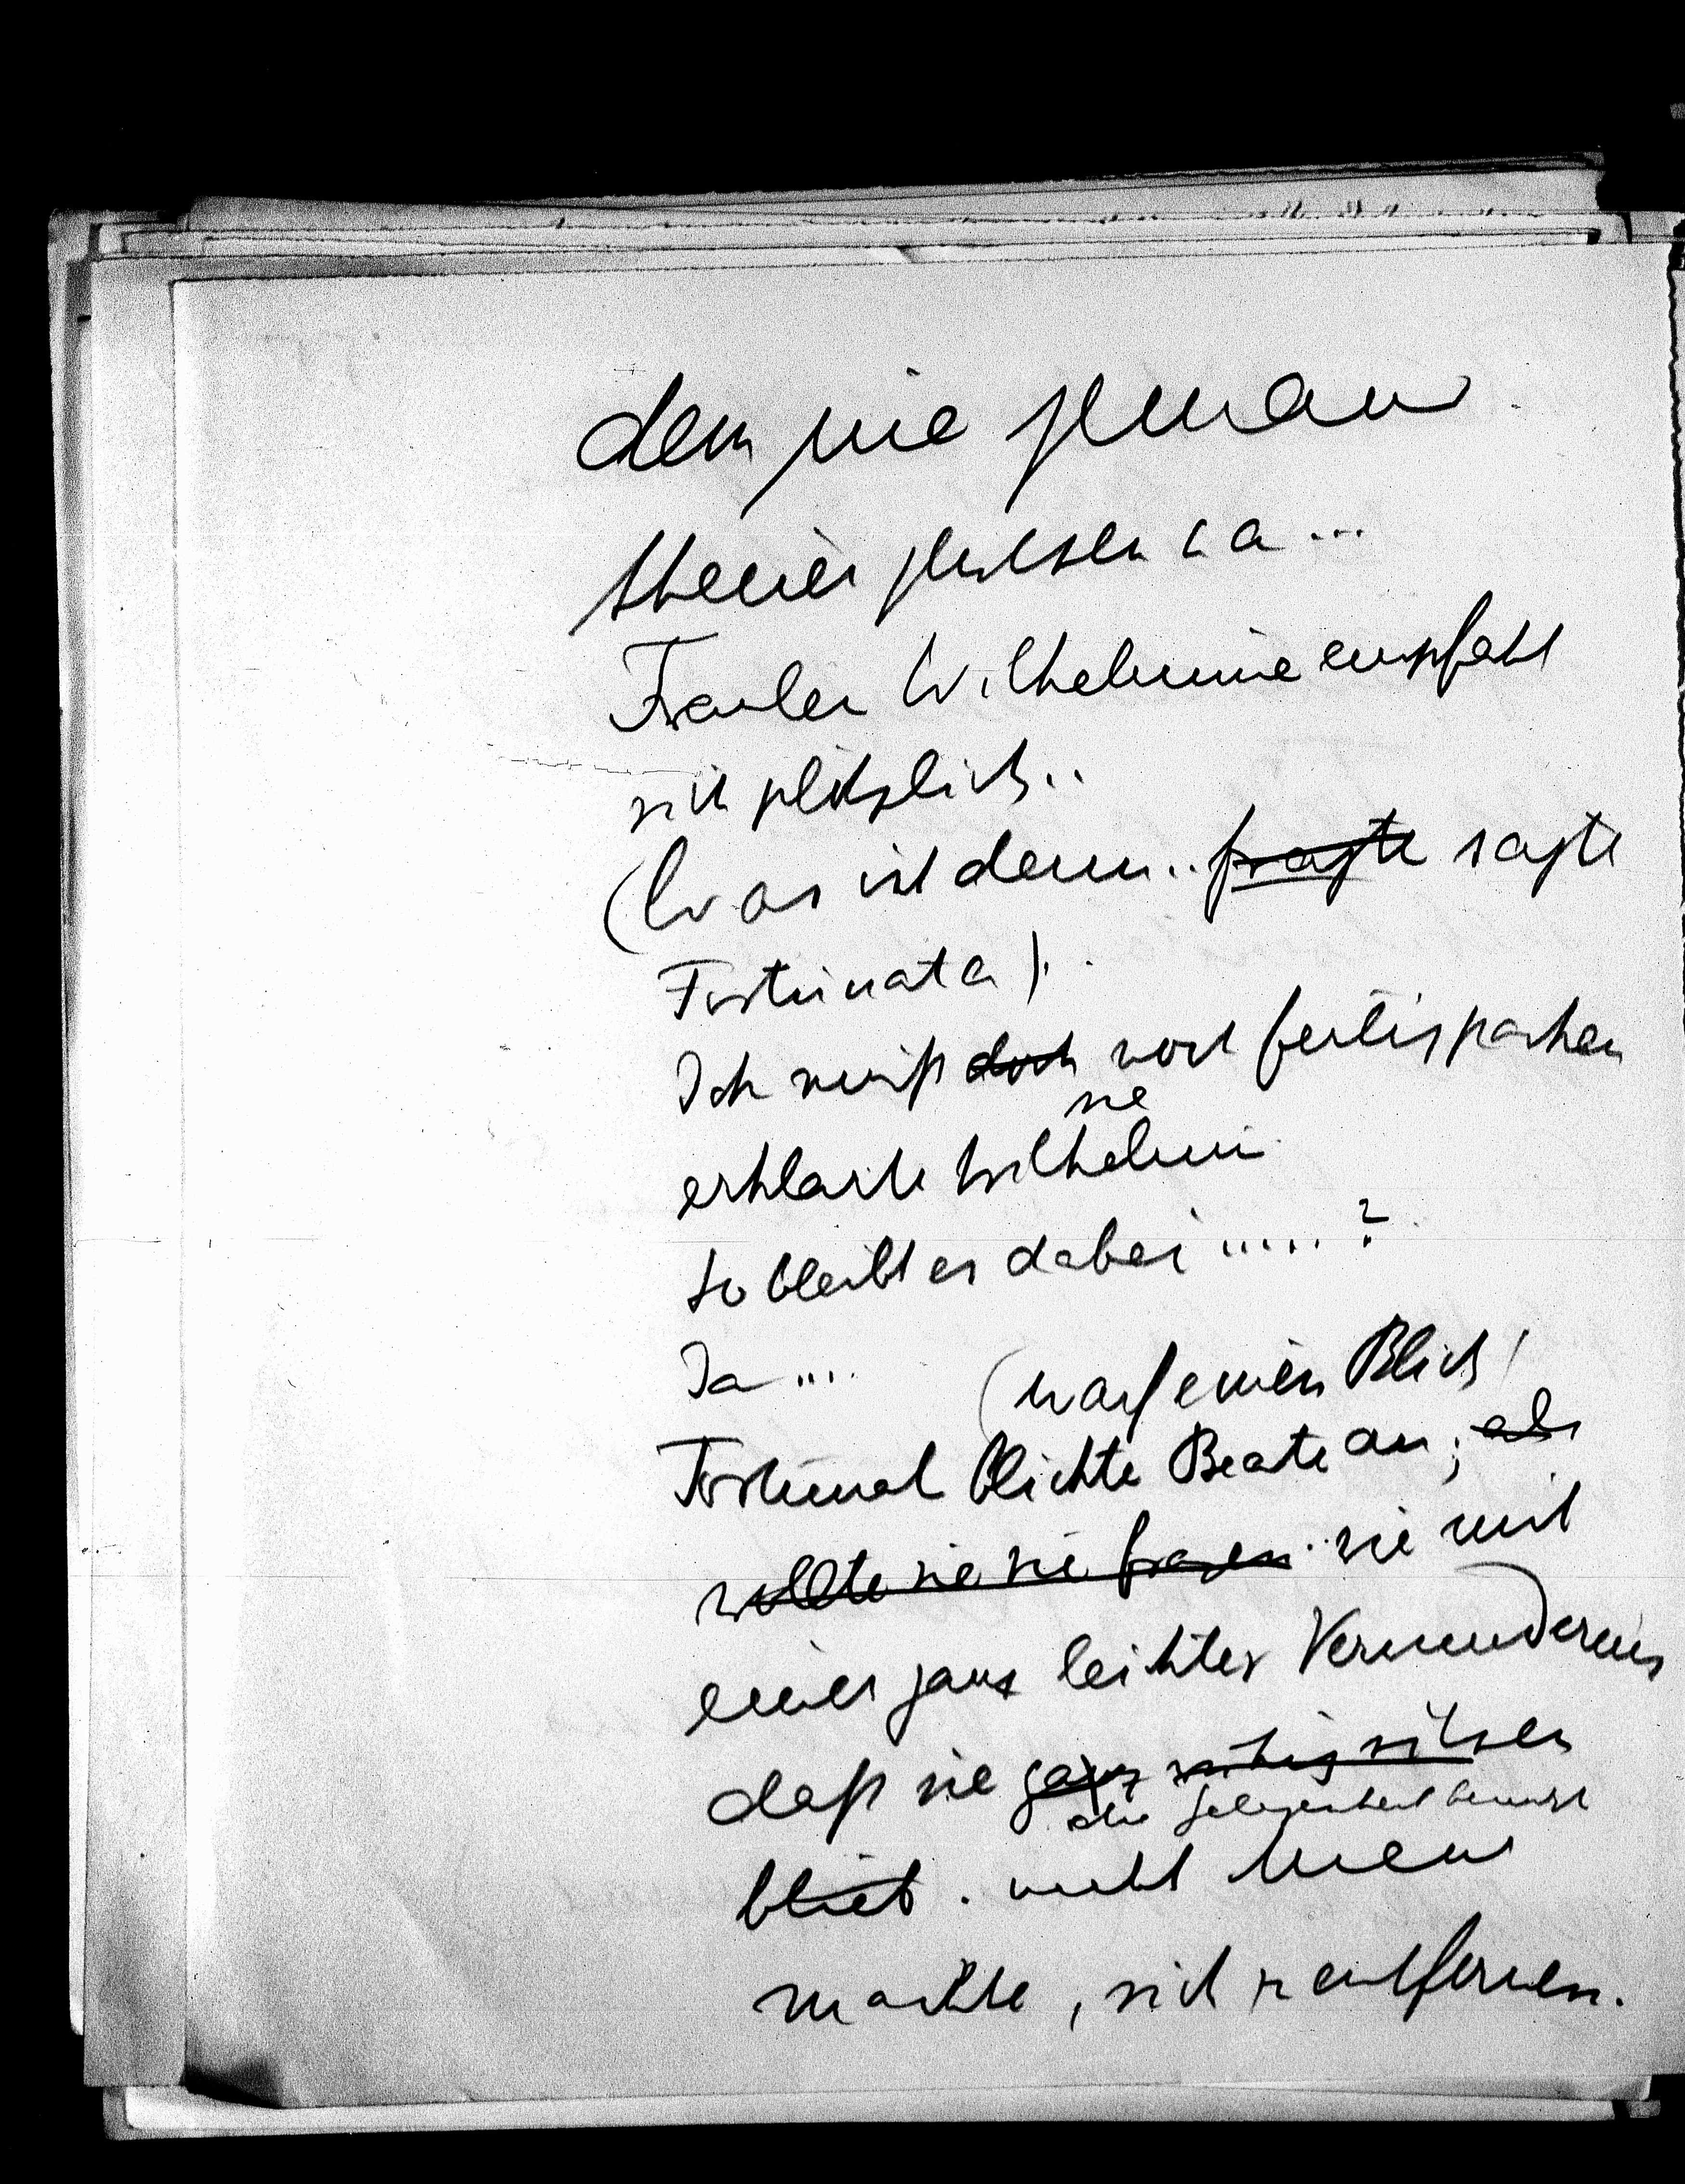 dem nie jeman
theuer gewesen w a...
Fräulein Wilhelmine empfahl
sich plötzlich..
(Was ist denn.. fragte sagte
Fortunata)..
Ich muß doch noch fertig packen
ne
erklärte Wilhelmi
So bleibt es dabei .....?
Ja .... (warf einen Blick)
Fortunat blickte Beate an; als
wollte sie sie fragen.. sie mit
einer ganz leichten Verwunderung
daß sie ganz ruhig sitzen
die Gelegenheit benutzt
blieb. nicht Miene
machte, sich zu entfernen.